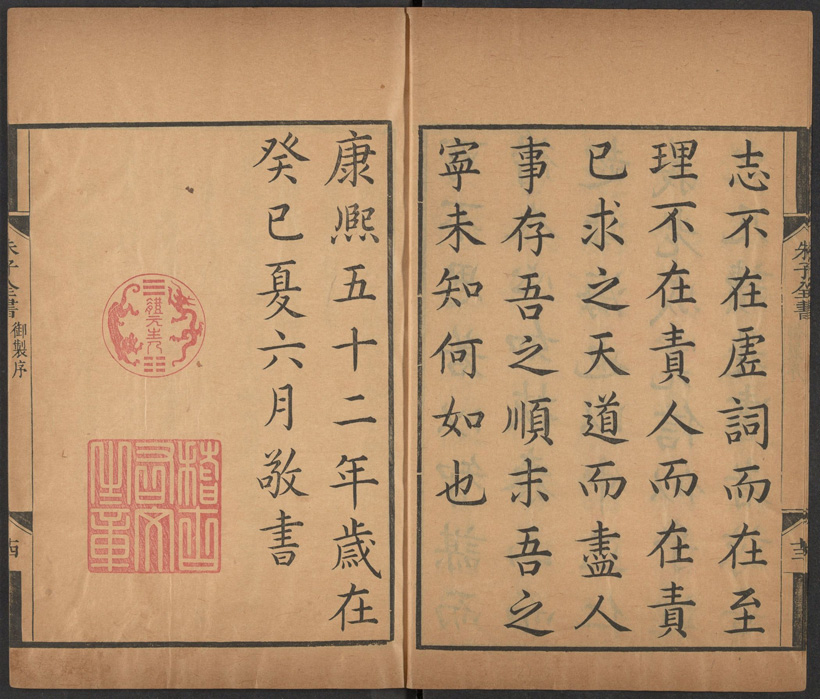 朱子全書
志不在虛詞而在至
理不在責人而在責
己求之天道而盡人
事存吾之順末吾之
寧未知何如也
康熙五十二年歲在
癸巳夏六月敬書
體元主人
稽古右文之章
朱子全書
御製序